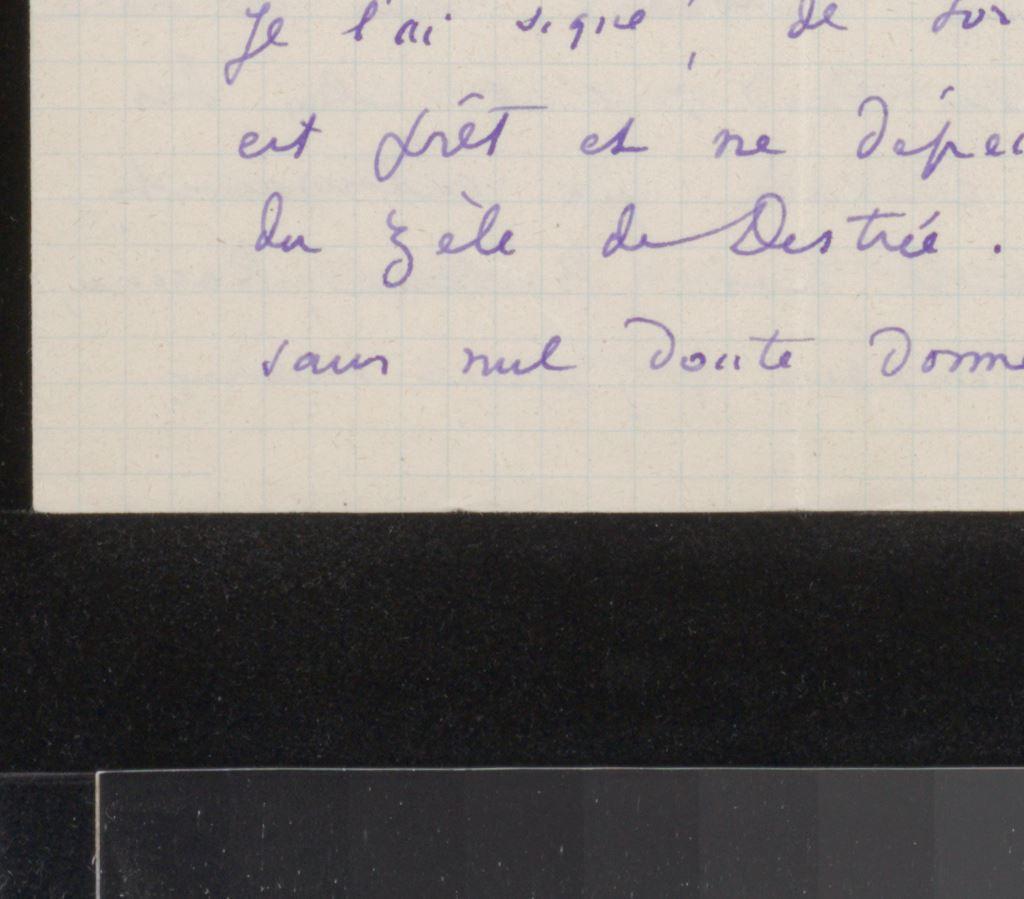 Je l'ai signé, de sor
est prêt et ne dépen
du zèle de Destrée.
sans nul doute donne